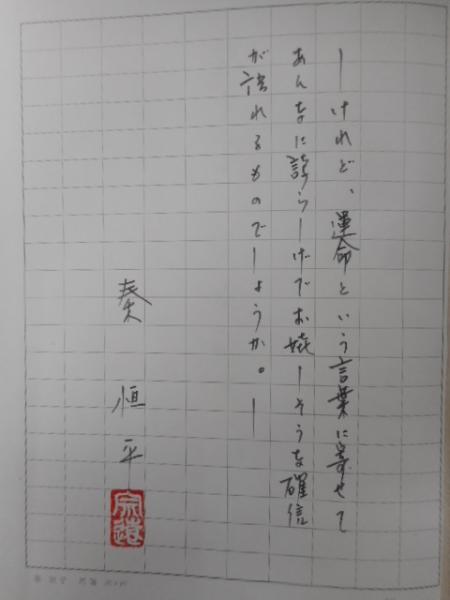 —けれど、運命という言葉に寄せて
あんなに誇らしげでお嬉しそうな確信
が語れるものでしょうか。—
秦 恒平
宗遠